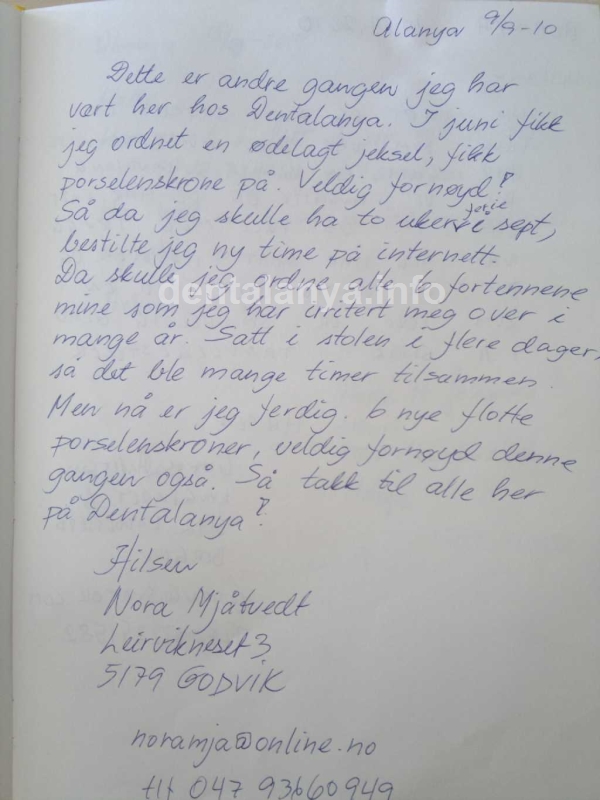 Alanya 9/9-10
Dette er andre gangen jeg har
vært her hos Dentalanya. I juni fikk
jeg ordnet en ødelagt jeksel, fikk
porselenskrone på. Veldig fornøyd!
Så da jeg skulle ha to uker ferie i sept,
bestilte jeg ny time på internett.
Da skulle jeg ordne alle 6 fortennene
dentalanya.info
mine som jeg har irritert meg over i
mange år. Satt i stolen i flere dager,
så det ble mange timer tilsammen.
Men nå er jeg ferdig. 6 nye flotte
porselenskroner, veldig fornøyd denne
gangen også. Så takk til alle her
på Dentalanya!
Hilsen
Nora Mjåtvedt
Leirvikneset 3
5179 GODVIK
noramja@online.no
tlf 047 93660949